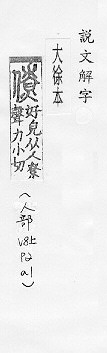 說文解字
大徐本
僚
好皃从人尞
聲力小切
(人部
v8上
p2a1)